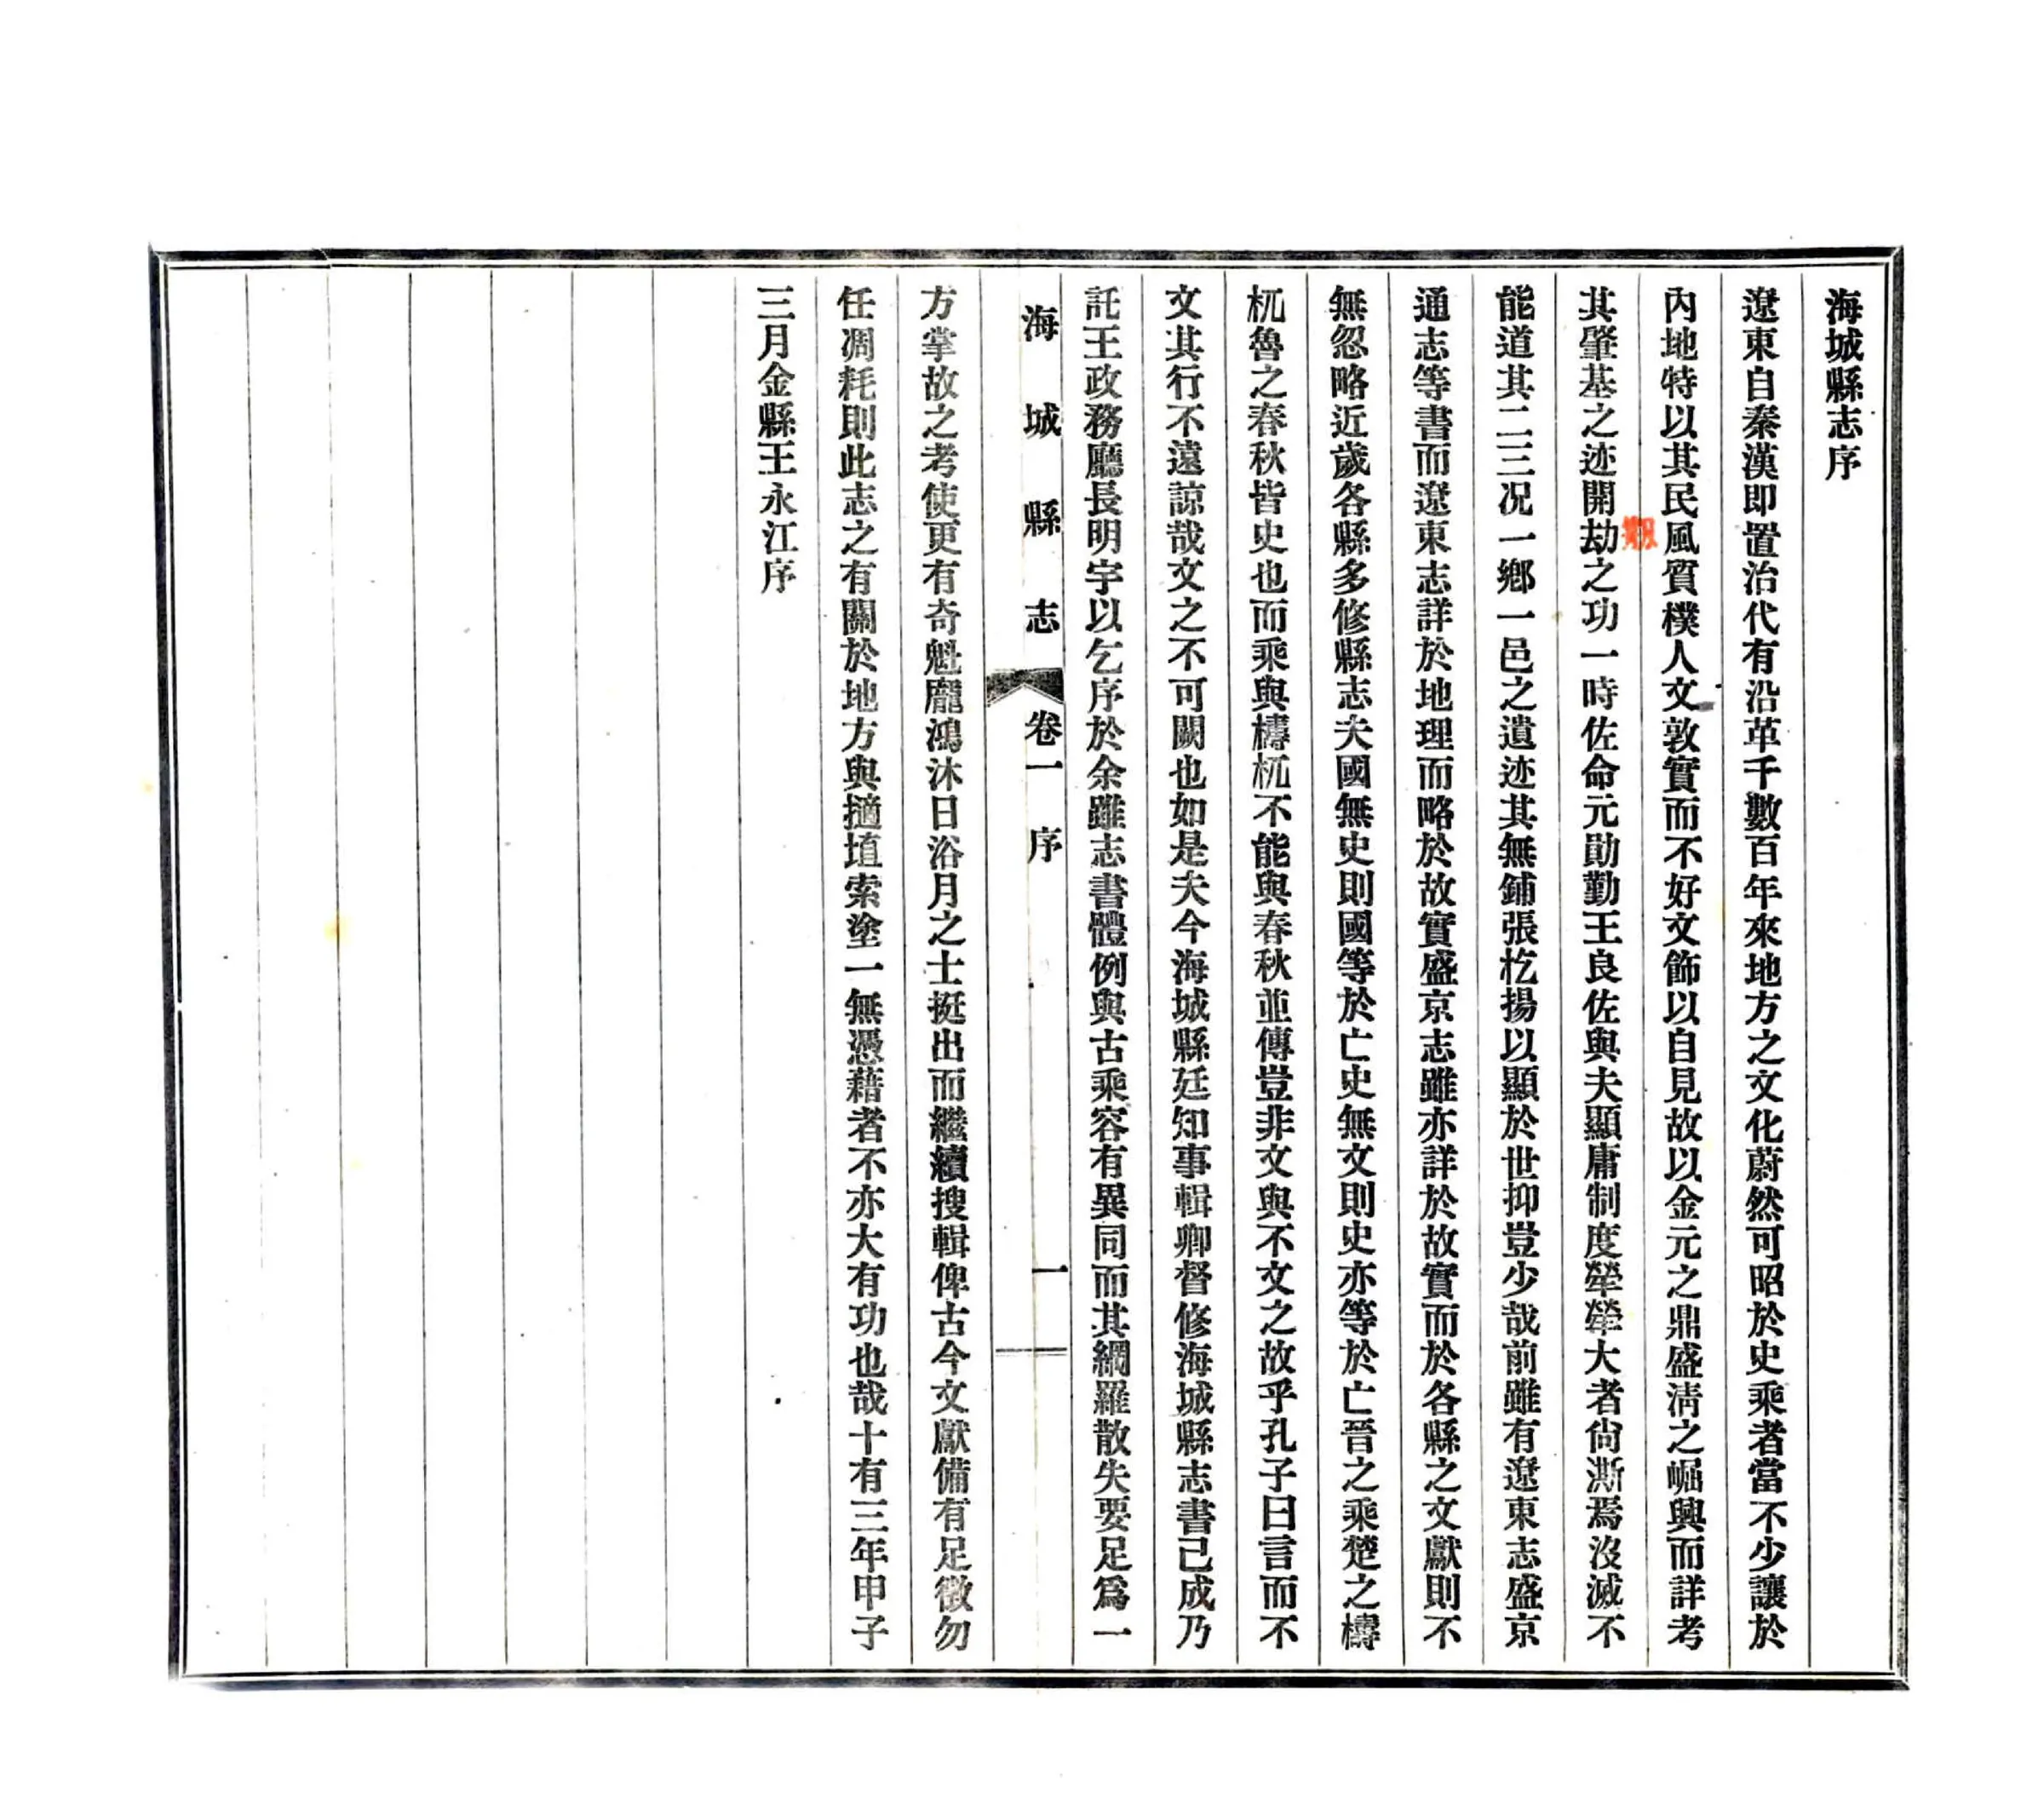 海城縣志序
遼東自秦漢即置治代有沿革千數百年來地方之文化蔚然可昭於史乘者當不少讓於
內地特以其民風質樸人文敦實而不好文飾以自見故以金元之鼎盛淸之崛興而詳考
其肇基之迹開劫之功一時佐命元勛勤王良佐與夫顯庸制度犖犖大者尙澌焉沒滅不
能道其二三况一鄉一邑之遺迹其無鋪張扢揚以顯於世抑豈少哉前雖有遼東志盛京
通志等書而遼東志詳於地理而略於故實盛京志雖亦詳於故實而於各縣之文獻則不
無忽略近歲各縣多修縣志夫國無史則國等於亡史無文則史亦等於亡晉之乘楚之檮
杌魯之春秋皆史也而乘與檮杌不能與春秋並傳豈非文與不文之故乎孔子曰言而不
文其行不遠諒哉文之不可闕也如是夫今海城縣廷知事輯卿督修海城縣志書已成乃
託王政務廳長明宇以乞序於余雖志書體例與古乘容有異同而其網羅散失要足爲一
海城縣志 卷一 序 一
方掌故之考使更有奇魁龐鴻沐日浴月之士挺出而繼續搜輯俾古今文獻備有足徵勿
任凋耗則此志之有關於地方與擿埴索塗一無憑藉者不亦大有功也哉十有三年甲子
三月金縣王永江序